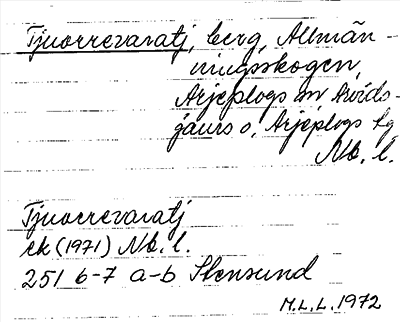 Tjuorrevaratj, berg, Allmän-
ningsskogen,
Arjeplogs m Arvids-
jaurs o, Arjeplogs tg
Nb. l.
Tjuorrevaratj
ek (1971) Nb. l.
251 6-7 a-b Stensund
M.L.L. 1972